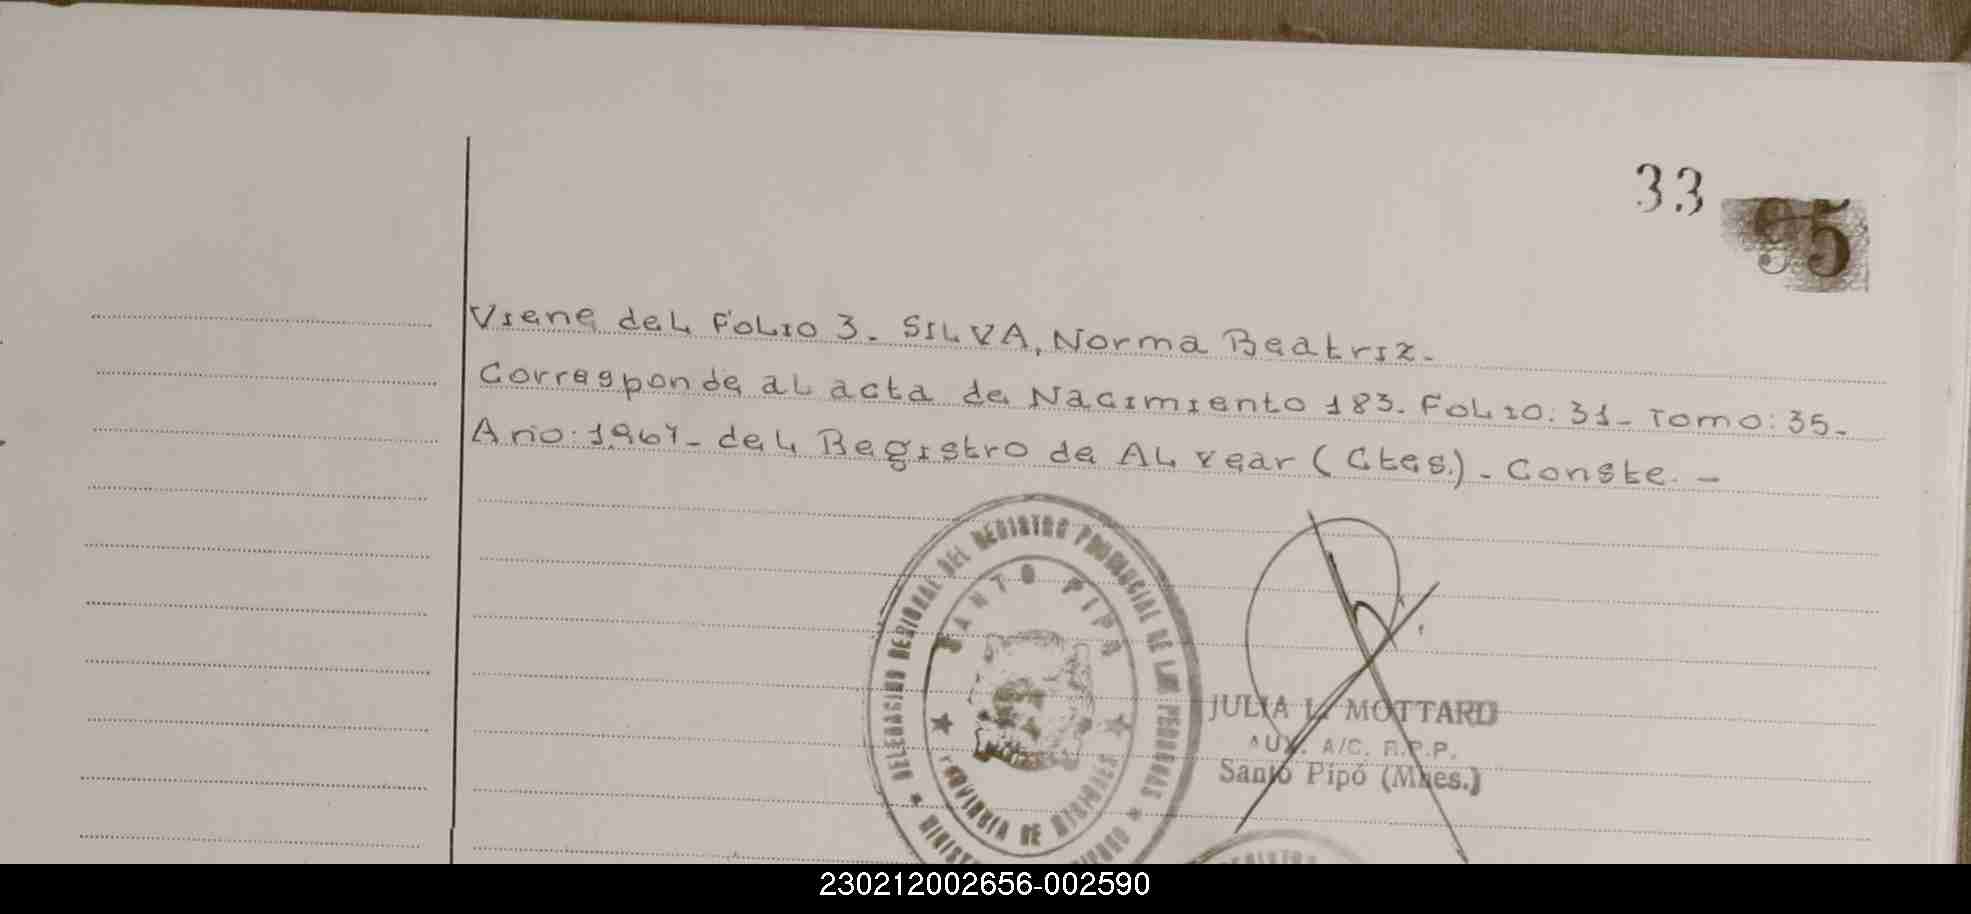 33
95
Viene del Folio 3. SILVA, Norma Beatriz.
Corresponde al acta de Nacimiento 183. Folio: 31- Tomo: 35-
Año: 1967- del Registro de Alvear (Ctes.) - Conste. -
DELEGACION REGIONAL DEL REGISTRO PROVINCIAL DE LAS PERSONAS
SANTO PIPO
PROVINCIA DE MISIONES
JULIA L. MOTTARD
AUX. A/C. R.P.P.
Santo Pipó (Mnes.)
REGISTRO
230212002656-002590